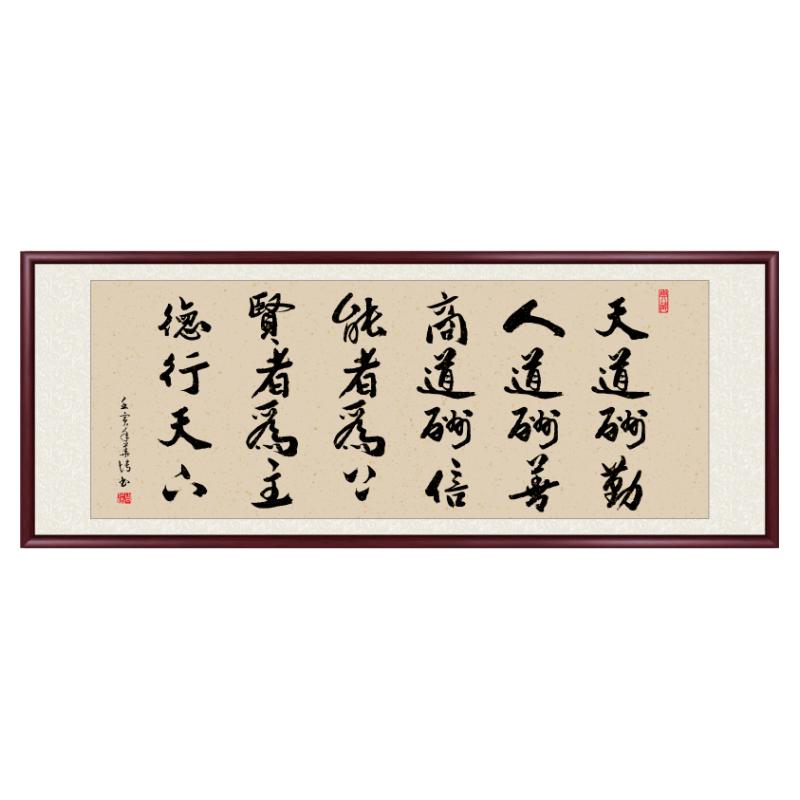 天道酬勤
人道酬善
商道酬信
能者為公
賢者為主
德行天下